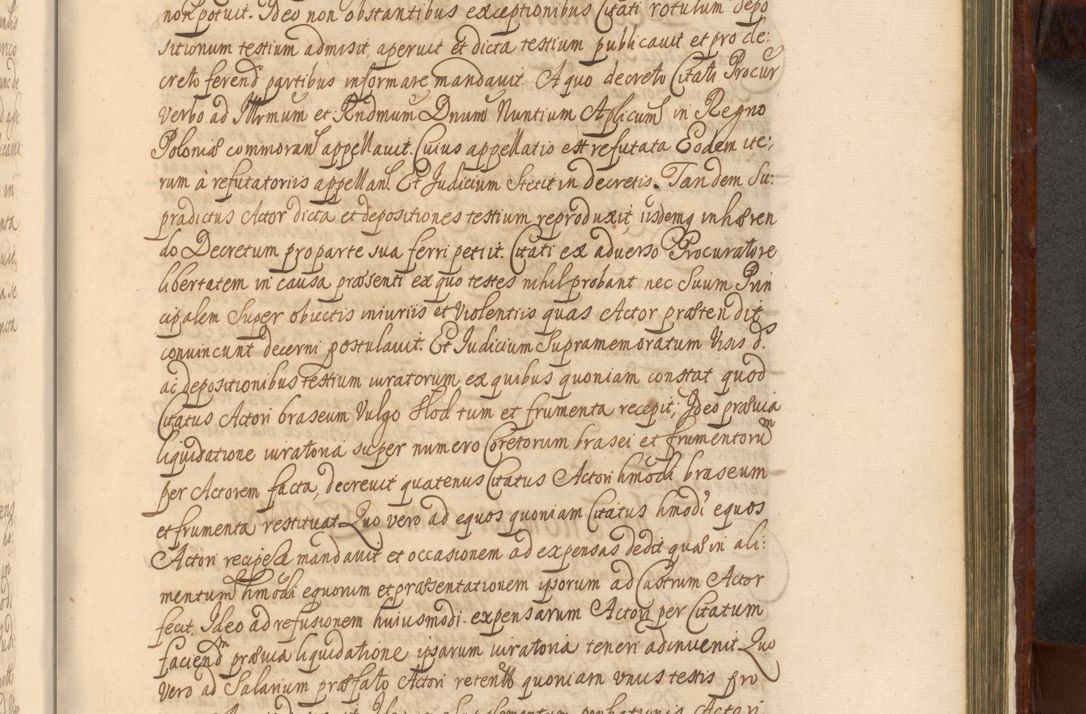 non potuit. Ideo non obstantibus exceptionibus Citati rotulum depo
sitionum testium admisit, aperuit et dicta testium publicauit et pro de:
creto ferend partibus informare mandauit. A quo decreto Citati Procur
verbo ad Illrmum et Rndmum Dnum Nuntium Aplicum in Regno
Poloniæ commoran appellauit. Cuius appellatio est refutata Eodem ite:
rum à refutatoriis appellan. Et Judicium Stetit in decretis. Tandem Su:
pradictus Actor dicta et depositiones testium reproduxit, iisdemq inhæren
do Decretum pro parte sua ferri petiit. Citati ex aduerso Procuratore
libertatem in causa præsenti ex quo testes nihil probant nec Suum Prin
cipalem Super obiectis iniuriis et Violentiis quas Actor prætendit
conuincunt decerni postulauit. Et Judicium Supramemoratum Visis ds
ac depositionibus testium iuratorum ex quibus quoniam constat quod
Citatus Actori braseum Vulgo Slod tum et frumenta recepit, Ideo præuia
liquidatione iuratoria super numero Coretorum brasei et frumentorum
per Actorem facta, decreuit quatenus Citatus Actori hmodi braseum
et frumenta restituat. Quo vero ad equos quoniam Citatus hmodi equos
Actori recipere mandauit et occasionem ad expensas dedit quas in ali:
mentum hmodi equorum et præsentationem ipsorum ad Castrum Actor
fecit, Ideo ad refusionem huiusmodi expensarum Actori per Citatum
faciend præuia liquidatione ipsarum iuratoria teneri adinuenit. Quo
vero ad Salarium præfato Actori retent quoniam vnus testis pro